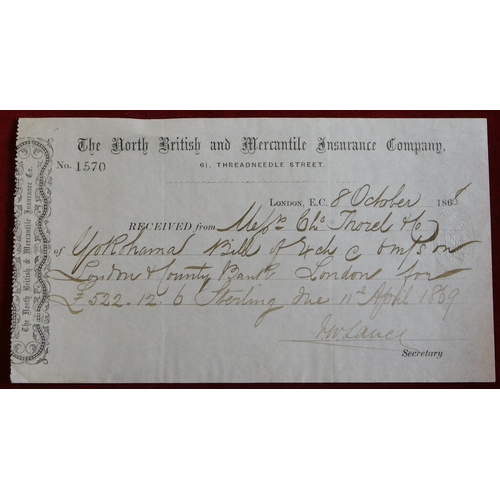 The North British & Mercantile Insurance Co.
The North British and Mercantile Insurance Company,
No. 1570
61, THREADNEEDLE STREET.
LONDON, E.C. 8 October 1868
RECEIVED from Messrs Chs Thorel & Co
of Yokohama Bill of Exch c 6 m/s on
London & County Bank London for
£522.12.6 Sterling due 11th April 1869
Secretary